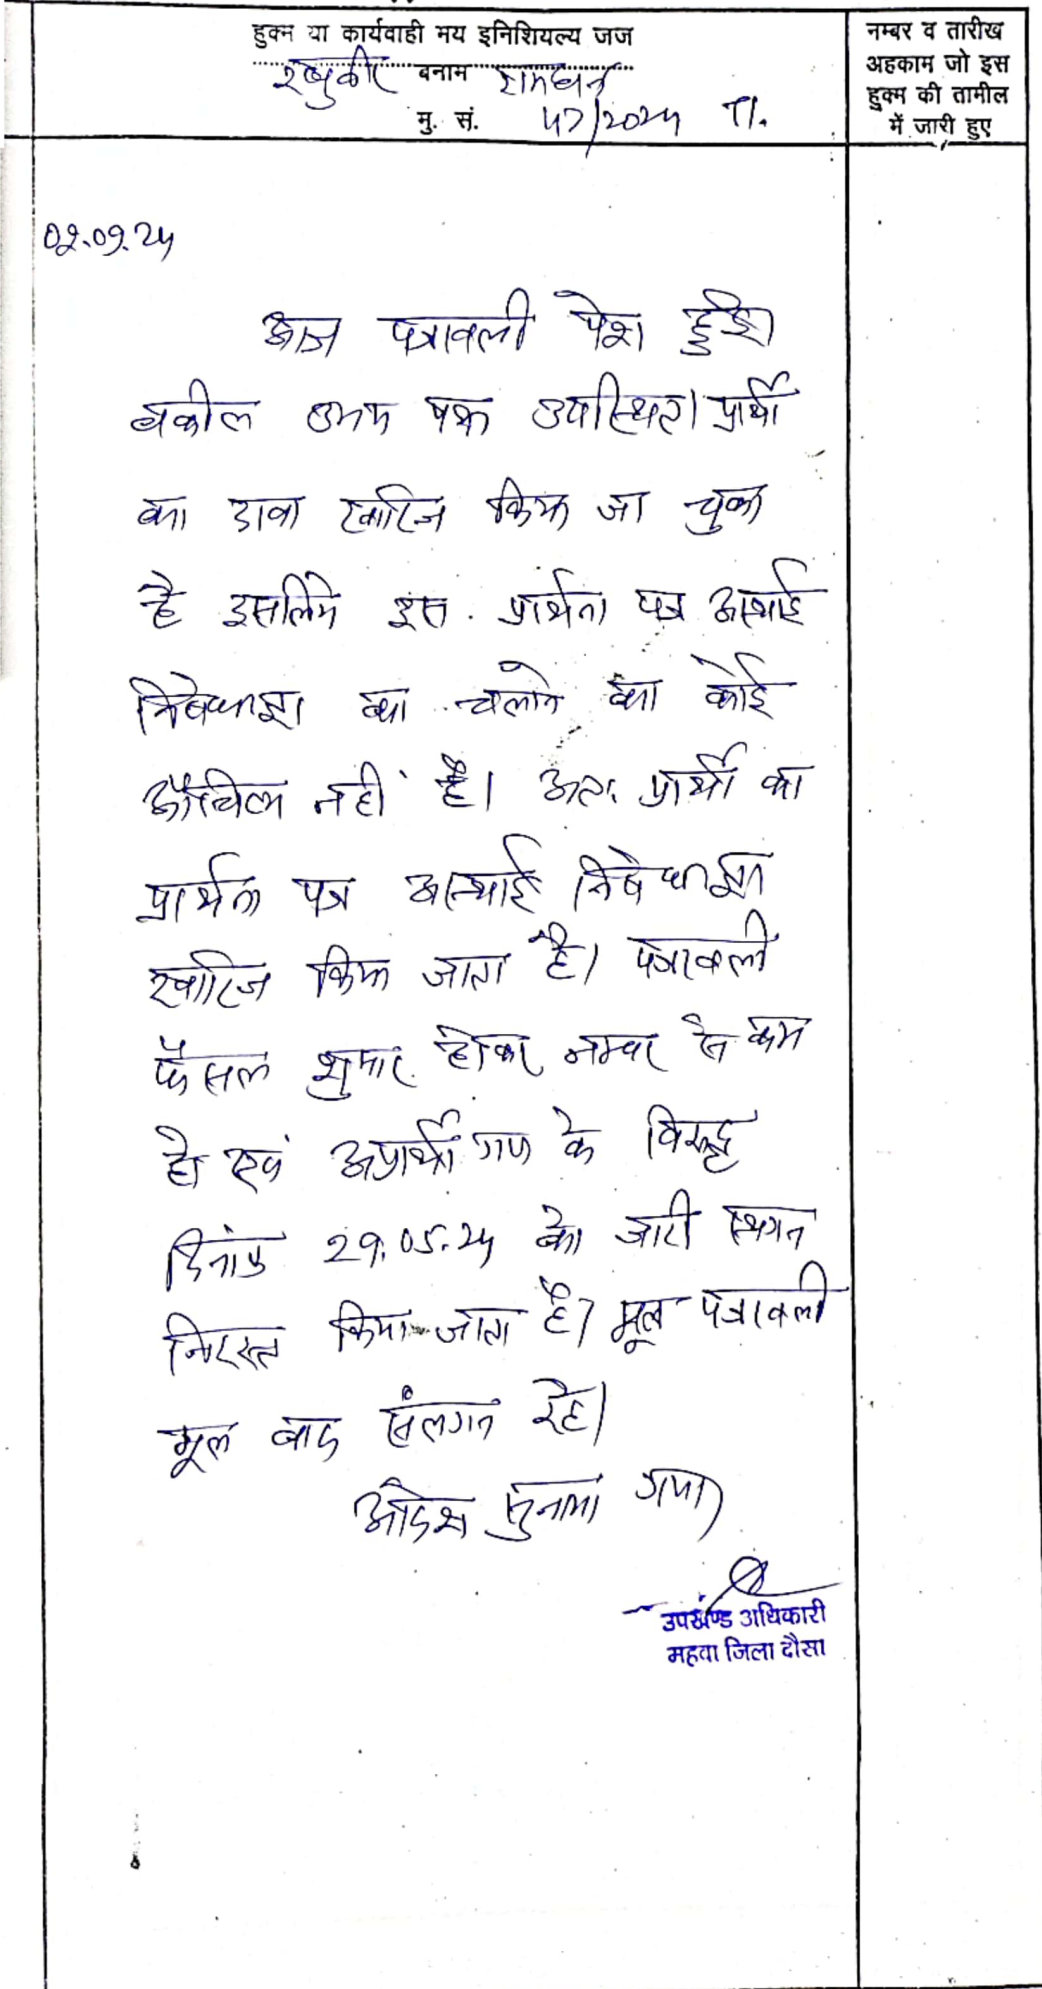 हुक्म या कार्यवाही मय इनिशियल्य जज
रघुवीर बनाम रामधन
मु. सं. 47/2024 TI.
नम्बर व तारीख
अहकाम जो इस
हुक्म की तामील
में जारी हुए
02.09.24
आज पत्रावली पेश हुई।
वकील उभय पक्ष उपस्थित। प्रार्थी
का दावा खारिज किया जा चुका
है इसलिये इस प्रार्थना पत्र अस्थाई
निषेधाज्ञा का चलाने का कोई
औचित्य नहीं है। अतः प्रार्थी का
प्रार्थना पत्र अस्थाई निषेधाज्ञा
खारिज किया जाता है। पत्रावली
फैसल शुमार होकर नम्बर से कम
हो एवं अप्रार्थीगण के विरुद्ध
दिनांक 29.05.24 को जारी स्थगन
निरस्त किया जाता है। मूल पत्रावली
मूल वाद संलग्न रहे।
आदेश सुनाया गया।
उपखण्ड अधिकारी
महवा जिला दौसा